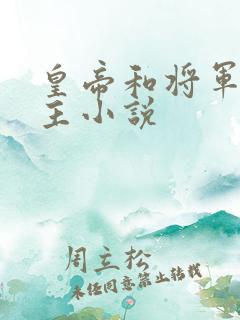 皇帝和将軍
王小説
周立松
未经同意禁止转载